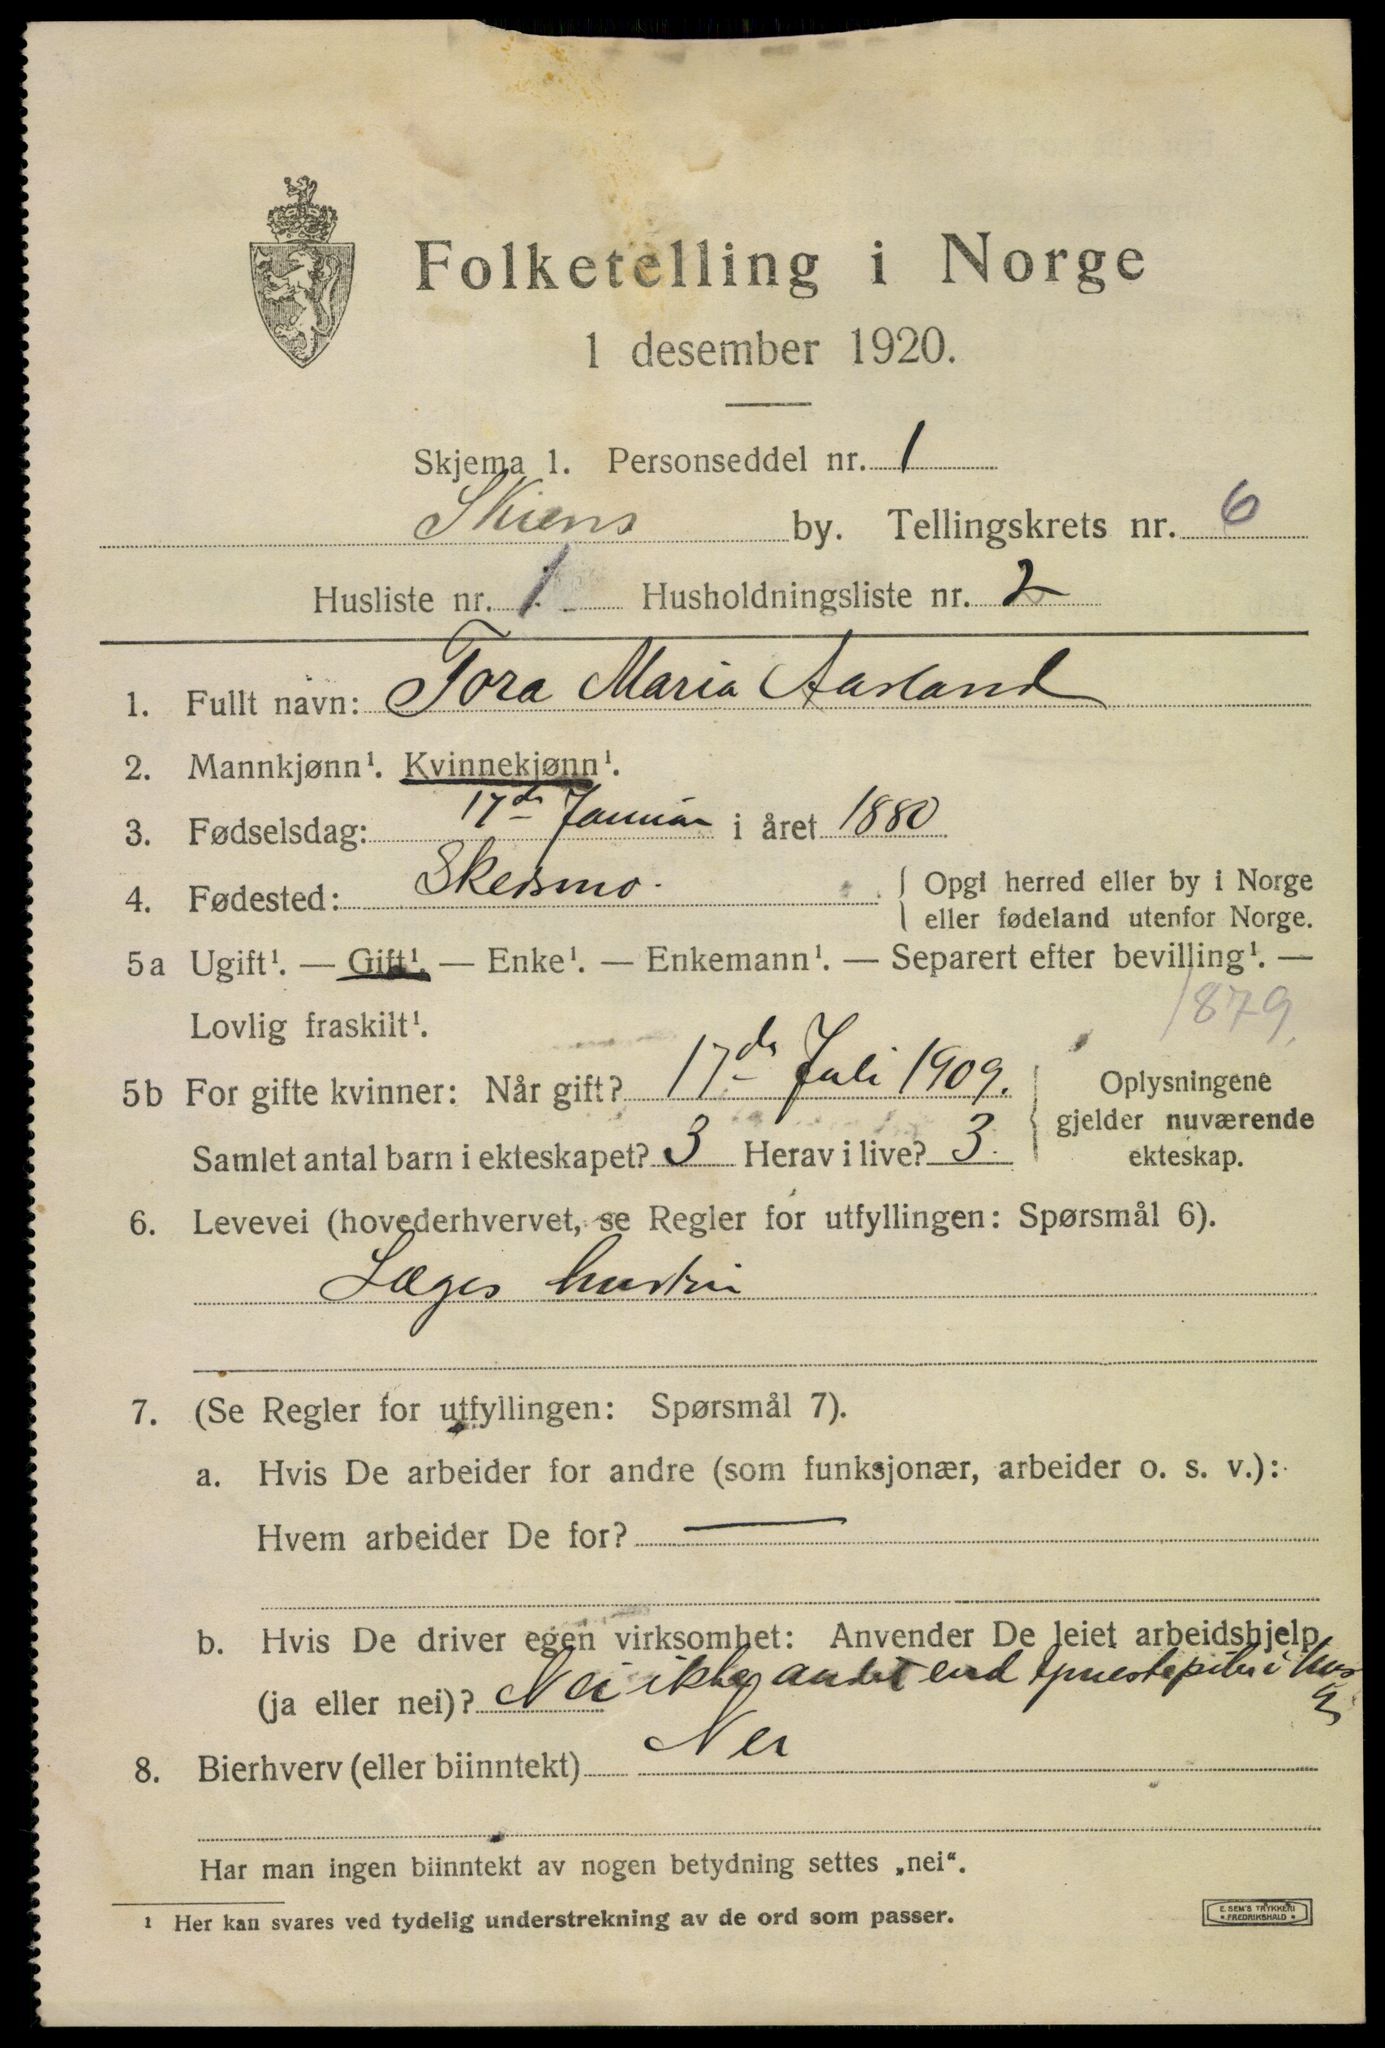 Folketelling i Norge
1 desember 1920.
Skjema 1. Personseddel nr. 1
Skiens by. Tellingskrets nr. 6
Husliste nr. 1 Husholdningsliste nr. 2
1. Fullt navn: Tora Maria Aasland
2. Mannkjønn¹. Kvinnekjønn¹.
3. Fødselsdag: 17de Januar i året 1880
4. Fødested: Skedsmo. { Opgi herred eller by i Norge
eller fødeland utenfor Norge.
5a Ugift¹. — Gift¹. — Enke¹. — Enkemann¹. — Separert efter bevilling¹. —
Lovlig fraskilt¹. 1879.
5b For gifte kvinner: Når gift? 17de Juli 1909. { Oplysningene
gjelder nuværende
Samlet antal barn i ekteskapet? 3 Herav i live? 3. ekteskap.
6. Levevei (hovederhvervet, se Regler for utfyllingen: Spørsmål 6).
Læges hustru
7. (Se Regler for utfyllingen: Spørsmål 7).
a. Hvis De arbeider for andre (som funksjonær, arbeider o. s. v.):
Hvem arbeider De for? —
b. Hvis De driver egen virksomhet: Anvender De leiet arbeidshjelp
(ja eller nei)? Nei ikke andet end tjenestepiker i hus
8. Bierhverv (eller biinntekt) Nei
Har man ingen biinntekt av nogen betydning settes „nei“.
¹ Her kan svares ved tydelig understrekning av de ord som passer.
E. SEM'S TRYKKERI
• FREDRIKSHALD •